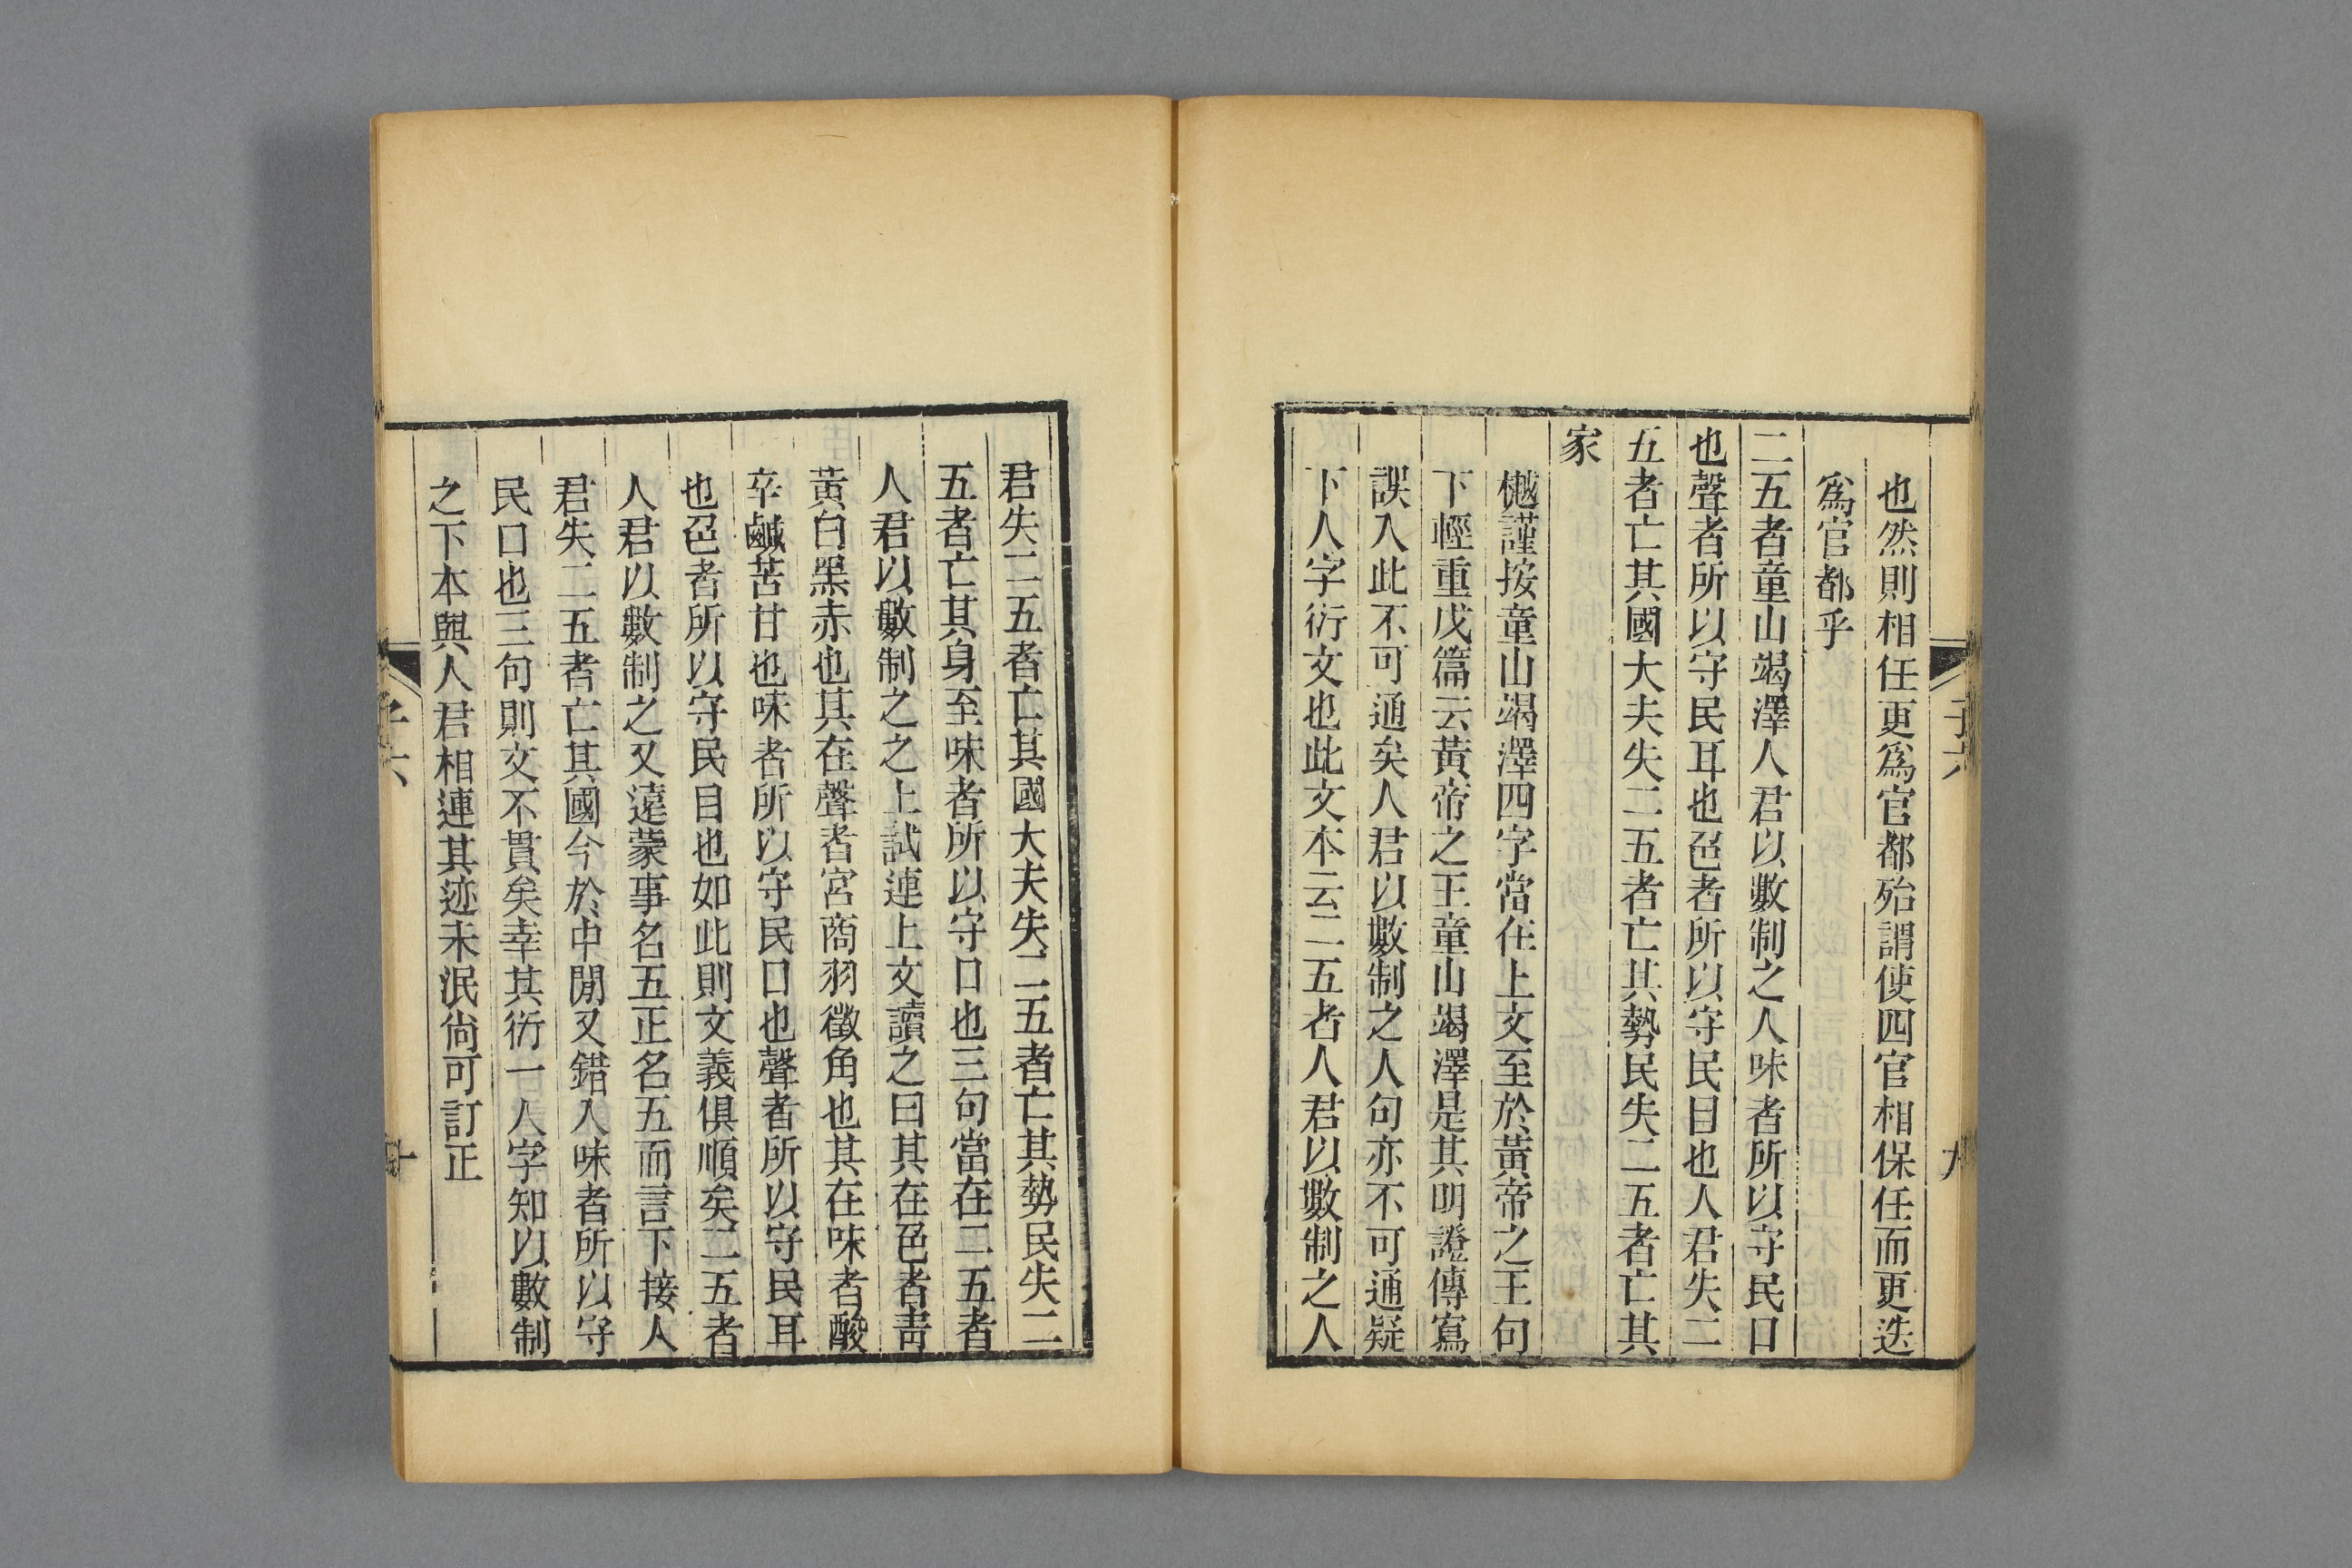 也然則相任更爲官都殆謂使四官相保任而更迭
爲官都乎
二五者童山竭澤人君以數制之人味者所以守民口
也聲者所以守民耳也色者所以守民目也人君失二
五者亡其國大夫失二五者亡其勢民失二五者亡其
家
樾謹按童山竭澤四字當在上文至於黃帝之王句
下輕重戊篇云黃帝之王童山竭澤是其明證傳寫
誤入此不可通矣人君以數制之人句亦不可通疑
下人字衍文也此文本云二五者人君以數制之人
君失二五者亡其國大夫失二五者亡其勢民失二
五者亡其身至味者所以守口也三句當在二五者
人君以數制之之上試連上文讀之曰其在色者靑
黃白黑赤也其在聲者宮商羽徵角也其在味者酸
辛鹹苦甘也味者所以守民口也聲者所以守民耳
也色者所以守民目也如此則文義俱順矣二五者
人君以數制之又遠蒙事名五正名五而言下接人
君失二五者亡其國今於中閒又錯入味者所以守
民口也三句則文不貫矣幸其衍一人字知以數制
之下本與人君相連其迹未泯尙可訂正
子六
十